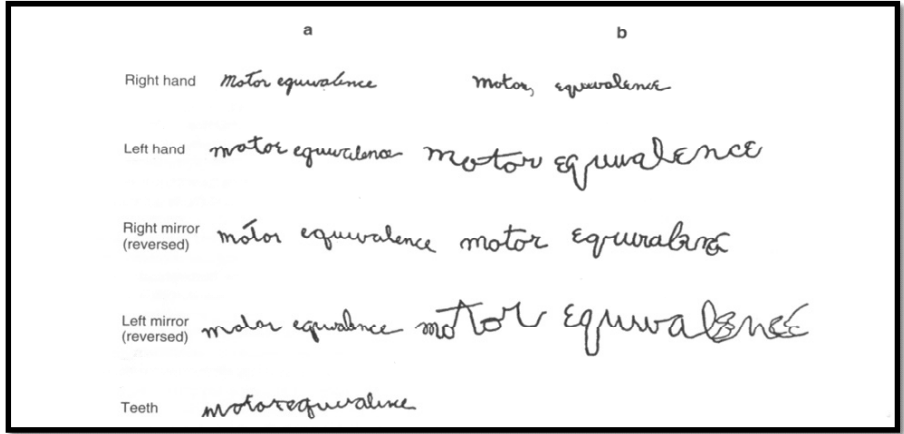 a b
Right hand Motor equivalence Motor, equivalence
Left hand motor equivalence motor equivalence
Right mirror
(reversed) motor equivalence motor equivalence
Left mirror
(reversed) motor equivalence motor equivalence
Teeth motor equivalence